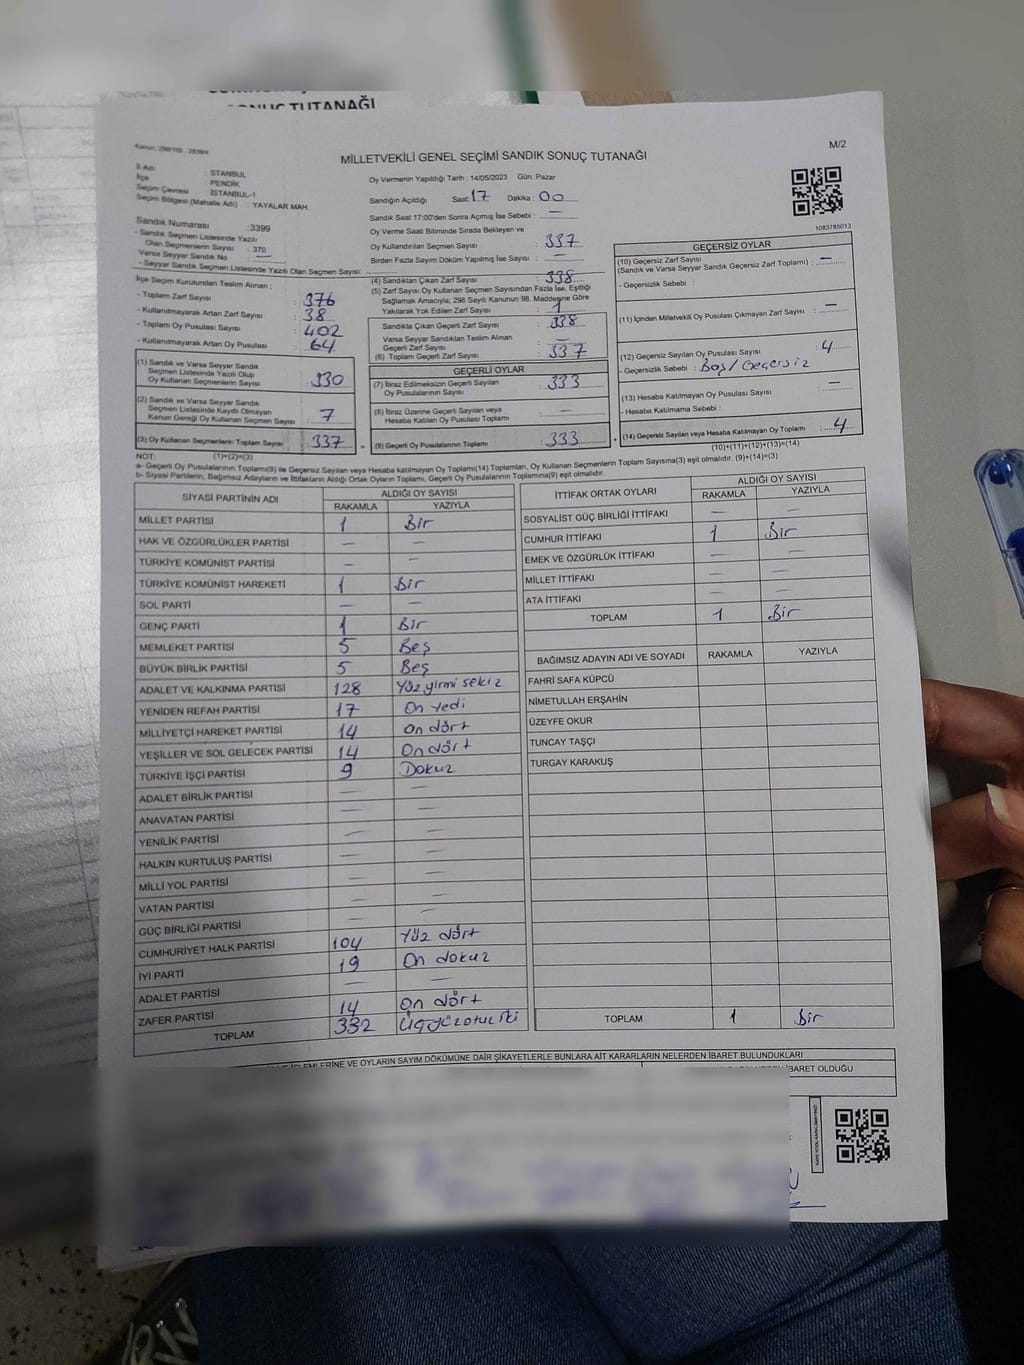 SONUÇ TUTANAĞI
M/2
MİLLETVEKİLİ GENEL SEÇİMİ SANDIK SONUÇ TUTANAĞI
İl Adı : İSTANBUL
İlçe : PENDİK
Seçim Çevresi : İSTANBUL-1
Seçim Bölgesi (Mahalle Adı) : YAYALAR MAH.
Sandık Numarası :3399
- Sandık Seçmen Listesinde Yazılı
Olan Seçmenlerin Sayısı : 370
Varsa Seyyar Sandık No : —
- Seyyar Sandık Seçmen Listesinde Yazılı Olan Seçmen Sayısı:
Oy Vermenin Yapıldığı Tarih : 14/05/2023 Gün: Pazar
Sandığın Açıldığı Saat: 17 Dakika : 00
Sandık Saat 17:00'den Sonra Açmış İse Sebebi : —
Oy Verme Saati Bitiminde Sırada Bekleyen ve
Oy Kullandırılan Seçmen Sayısı : 337
Birden Fazla Sayım Döküm Yapılmış İse Sayısı : —
1083785013
İlçe Seçim Kurulundan Teslim Alınan ;
- Toplam Zarf Sayısı : 376
- Kullanılmayarak Artan Zarf Sayısı : 38
- Toplam Oy Pusulası Sayısı : 402
- Kullanılmayarak Artan Oy Pusulası : 64
(1) Sandık ve Varsa Seyyar Sandık
Seçmen Listesinde Yazılı Olup
Oy Kullanan Seçmenlerin Sayısı : 330
(2) Sandık ve Varsa Seyyar Sandık
Seçmen Listesinde Kaydı Olmayan
Kanun Gereği Oy Kullanan Seçmen Sayısı : 7
(3) Oy Kullanan Seçmenlerin Toplam Sayısı : 337
(4) Sandıktan Çıkan Zarf Sayısı : 338
(5) Zarf Sayısı Oy Kullanan Seçmen Sayısından Fazla İse, Eşitliği
Sağlamak Amacıyla; 298 Sayılı Kanunun 98. Maddesine Göre
Yakılarak Yok Edilen Zarf Sayısı : 1
Sandıkta Çıkan Geçerli Zarf Sayısı : 338
Varsa Seyyar Sandıktan Teslim Alınan
Geçerli Zarf Sayısı : —
(6) Toplam Geçerli Zarf Sayısı : 337
GEÇERLİ OYLAR
(7) İtiraz Edilmeksizin Geçerli Sayılan
Oy Pusulalarının Sayısı : 333
(8) İtiraz Üzerine Geçerli Sayılan veya
Hesaba Katılan Oy Pusulası Toplamı : —
(9) Geçerli Oy Pusulalarının Toplamı : 333
GEÇERSİZ OYLAR
(10) Geçersiz Zarf Sayısı : —
(Sandık ve Varsa Seyyar Sandık Geçersiz Zarf Toplamı)
- Geçersizlik Sebebi :
(11) İçinden Milletvekili Oy Pusulası Çıkmayan Zarf Sayısı : —
(12) Geçersiz Sayılan Oy Pusulası Sayısı : 4
- Geçersizlik Sebebi : Boş/Geçersiz
(13) Hesaba Katılmayan Oy Pusulası Sayısı : —
- Hesaba Katılmama Sebebi :
(14) Geçersiz Sayılan veya Hesaba Katılmayan Oy Toplamı : 4
NOT: (1)+(2)=(3) (10)+(11)+(12)+(13)=(14)
a- Geçerli Oy Pusulalarının Toplamı(9) ile Geçersiz Sayılan veya Hesaba katılmayan Oy Toplamı(14) Toplamları, Oy Kullanan Seçmenlerin Toplam Sayısına(3) eşit olmalıdır. (9)+(14)=(3)
b- Siyasi Partilerin, Bağımsız Adayların ve İttifakların Aldığı Ortak Oyların Toplamı, Geçerli Oy Pusulalarının Toplamına(9) eşit olmalıdır.
SİYASİ PARTİNİN ADI ALDIĞI OY SAYISI
RAKAMLA YAZIYLA
MİLLET PARTİSİ 1 Bir
HAK VE ÖZGÜRLÜKLER PARTİSİ — —
TÜRKİYE KOMÜNİST PARTİSİ — —
TÜRKİYE KOMÜNİST HAREKETİ 1 Bir
SOL PARTİ — —
GENÇ PARTİ 1 Bir
MEMLEKET PARTİSİ 5 Beş
BÜYÜK BİRLİK PARTİSİ 5 Beş
ADALET VE KALKINMA PARTİSİ 128 Yüz yirmi sekiz
YENİDEN REFAH PARTİSİ 17 On yedi
MİLLİYETÇİ HAREKET PARTİSİ 14 On dört
YEŞİLLER VE SOL GELECEK PARTİSİ 14 On dört
TÜRKİYE İŞÇİ PARTİSİ 9 Dokuz
ADALET BİRLİK PARTİSİ — —
ANAVATAN PARTİSİ — —
YENİLİK PARTİSİ — —
HALKIN KURTULUŞ PARTİSİ — —
MİLLİ YOL PARTİSİ — —
VATAN PARTİSİ — —
GÜÇ BİRLİĞİ PARTİSİ — —
CUMHURİYET HALK PARTİSİ 104 Yüz dört
İYİ PARTİ 19 On dokuz
ADALET PARTİSİ — —
ZAFER PARTİSİ 14 On dört
TOPLAM 332 Üçyüzotuziki
İTTİFAK ORTAK OYLARI ALDIĞI OY SAYISI
RAKAMLA YAZIYLA
SOSYALİST GÜÇ BİRLİĞİ İTTİFAKI — —
CUMHUR İTTİFAKI 1 Bir
EMEK VE ÖZGÜRLÜK İTTİFAKI — —
MİLLET İTTİFAKI — —
ATA İTTİFAKI — —
TOPLAM 1 Bir
BAĞIMSIZ ADAYIN ADI VE SOYADI RAKAMLA YAZIYLA
FAHRİ SAFA KÜPCÜ
NİMETULLAH ERŞAHİN
ÜZEYFE OKUR
TUNCAY TAŞÇI
TURGAY KARAKUŞ
TOPLAM 1 Bir
İŞLEMLERİNE VE OYLARIN SAYIM DÖKÜMÜNE DAİR ŞİKAYETLERLE BUNLARA AİT KARARLARIN NELERDEN İBARET BULUNDUKLARI
İBARET OLDUĞU